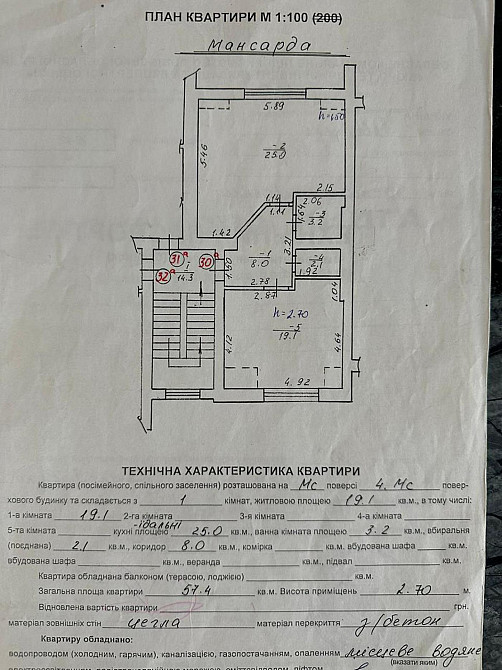 ПЛАН КВАРТИРИ М 1:100 (200)
Мансарда
5.89
h=1.60
5.46
-2
25.0
2.15
1.14
1.11
2.06
1.64
-3
3.2
1.42
3.21
-1
8.0
-4
2.1
1.92
31а
30а
32а
I
14.3
1.50
2.78
2.87
1.04
h=2.70
-5
19.1
4.12
4.64
4.92
ТЕХНІЧНА ХАРАКТЕРИСТИКА КВАРТИРИ
Квартира (посімейного, спільного заселення) розташована на Мс поверсі 4.Мс повер-
хового будинку та складається з 1 кімнат, житловою площею 19.1 кв.м., в тому числі:
1-а кімната 19.1 2-га кімната 3-я кімната 4-а кімната
5-та кімната кухні -їдальні площею 25.0 кв.м., ванна кімната площею 3.2 кв.м., вбиральня
(поєднана) 2.1 кв.м., коридор 8.0 кв.м., комірка кв.м., вбудована шафа кв.м.
вбудована шафа кв.м., веранда кв.м., підвал кв.м.
Квартира обладнана балконом (терасою, лоджією) кв.м.
Загальна площа квартири 57.4 кв.м. Висота приміщень 2.70 м.
Відновлена вартість квартири грн.
матеріал зовнішніх стін цегла матеріал перекриття з/бетон
Квартиру обладнано:
водопроводом (холодним, гарячим), каналізацією, газопостачанням, опаленням місцеве водяне
(вказати яким)